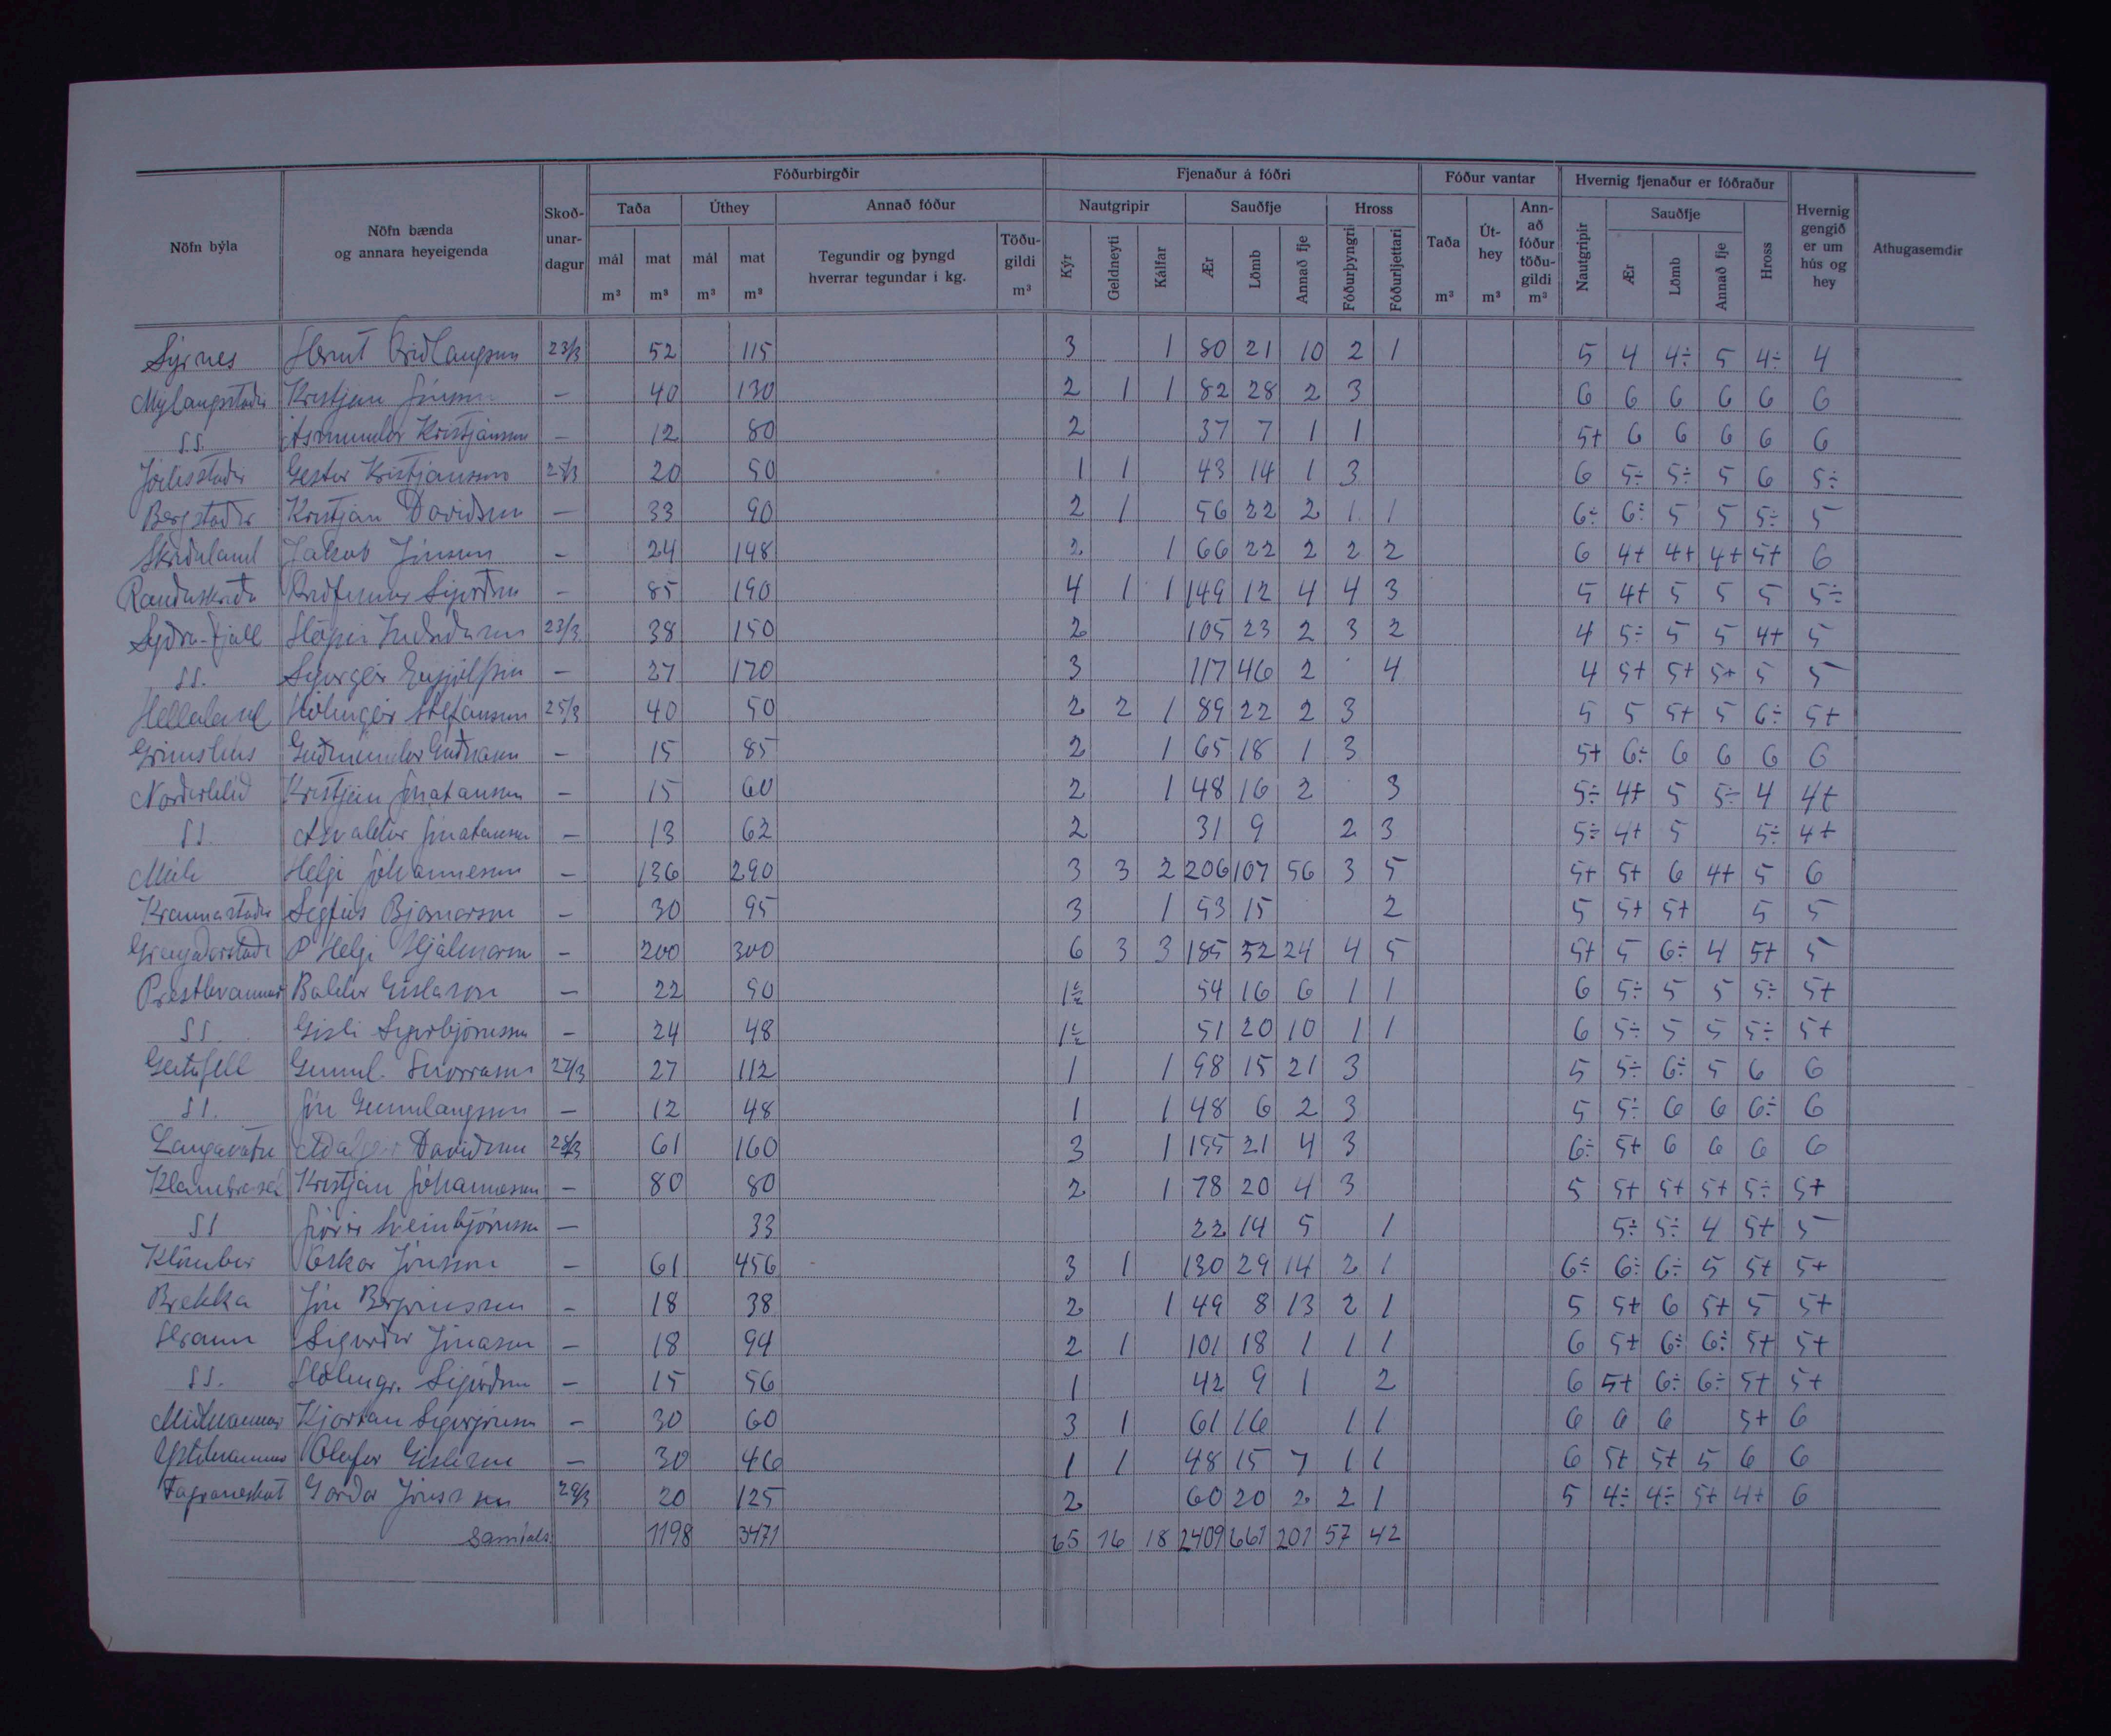 Fóðurbirgðir Fjenaður á fóðri Fóður vantar Hvernig fjenaður er fóðraður
Nöfn býla Nöfn bænda og annara heyeigenda Skoð-unar-dagur Taða Úthey Annað fóður Nautgripir Sauðfje Hross Taða Út-hey Ann-að fóður töðu-gildi m³ Nautgripir Sauðfje Hross Hvernig gengið er um hús og hey Athugasemdir
mál m³ mat m³ mál m³ mat m³ Tegundir og þyngd hverrar tegundar í kg. Töðu-gildi m³ Kýr Geldneyti Kálfar Ær Lömb Annað fje Fóðurþyngri Fóðurljettari m³ m³ Ær Lömb Annað fje
Sýrnes 23/3 52 115 3 1 80 21 10 2 1 5 4 4÷ 5 4÷ 4
Mýlaugsstaðir Kristján Jónsson — 40 130 2 1 1 82 28 2 3 6 6 6 6 6 6
S.S. Ásmundur Kristjánsson — 12 80 2 37 7 1 1 5+ 6 6 6 6 6
Gestur Kristjánsson 25/3 20 50 1 1 43 14 1 3 6 5÷ 5÷ 5 6 5÷
Bergstaðir Kristján Davíðsson — 33 90 2 1 56 22 2 1 1 6÷ 6÷ 5 5 5÷ 5
Skriðuland Jakob Jónsson — 24 148 2 1 66 22 2 2 2 6 4+ 4+ 4+ 5+ 6
Rauðaskriða Friðfinnur Sigurðsson — 85 190 4 1 1 149 12 4 4 3 5 4+ 5 5 5 5÷
Syðra-Fjall 23/3 38 150 2 105 23 2 3 2 4 5÷ 5 5 4+ 5
SS. — 27 170 3 117 46 2 4 4 5+ 5+ 5+ 5 5
Hellaland Hólmgeir Stefánsson 25/3 40 50 2 2 1 89 22 2 3 5 5 5+ 5 6÷ 5+
Grímshús Guðmundur Guðnason — 15 85 2 1 65 18 1 3 5+ 6÷ 6 6 6 6
Norðurhlíð Kristján Jónatansson — 15 60 2 1 48 16 2 3 5÷ 4+ 5 5÷ 4 4+
SS. Jónatansson — 13 62 2 31 9 2 3 5÷ 4+ 5 5÷ 4+
Múli Helgi Jóhannesson — 136 290 3 3 2 206 107 56 3 5 5+ 5+ 6 4+ 5 6
Kraunastaðir Sigfús Bjarnarson — 30 95 3 1 53 15 2 5 5+ 5+ 5 5
Grenjaðarstaðr Helgi Hjálmarsson — 200 300 6 3 3 185 32 24 4 5 5+ 5 6÷ 4 5+ 5
Presthvammur Baldur Gíslason — 22 50 1½ 54 16 6 1 1 6 5÷ 5 5 5÷ 5+
SS. Gísli Sigurbjörnsson — 24 48 1½ 51 20 10 1 1 6 5÷ 5 5 5÷ 5+
Geitafell Gunnl. Snorrason 27/3 27 112 1 1 98 15 21 3 5 5÷ 6÷ 5 6 6
SS. Jón Gunnlaugsson — 12 48 1 1 48 6 2 3 5 5÷ 6 6 6÷ 6
Langavatn Aðalgeir Davíðsson 28/3 61 160 3 1 155 21 4 3 6÷ 5+ 6 6 6 6
Klambrasel Kristján Jóhannesson — 80 80 2 1 78 20 4 3 5 5+ 5+ 5+ 5÷ 5+
SS Sveinbjörnsson — 33 22 14 5 1 5÷ 5÷ 4 5+ 5
Klömbur Óskar Jónsson — 61 456 3 1 130 29 14 2 1 6÷ 6÷ 6÷ 5 5+ 5+
Brekka Jón Bergvinsson — 18 38 2 1 49 8 13 2 1 5 5+ 6 5+ 5 5+
Hraun Sigurður Jónasson — 18 94 2 1 101 18 1 1 1 6 5+ 6÷ 6÷ 5+ 5+
SS. Hólmgr. Sigurðsson — 15 56 1 42 9 1 2 6 5+ 6÷ 6÷ 5+ 5+
Miðhvammur Kjartan Sigurjónsson — 30 60 3 1 61 16 1 1 6 6 6 5+ 6
Ystihvammur Ólafur Gíslason — 30 46 1 1 48 15 7 1 1 6 5+ 5+ 5 6 6
Fagraneskot Garðar Jónsson 29/3 20 125 2 60 20 2 2 1 5 4÷ 4÷ 5+ 4+ 6
Samtals 1198 3471 65 16 18 2409 667 201 57 42